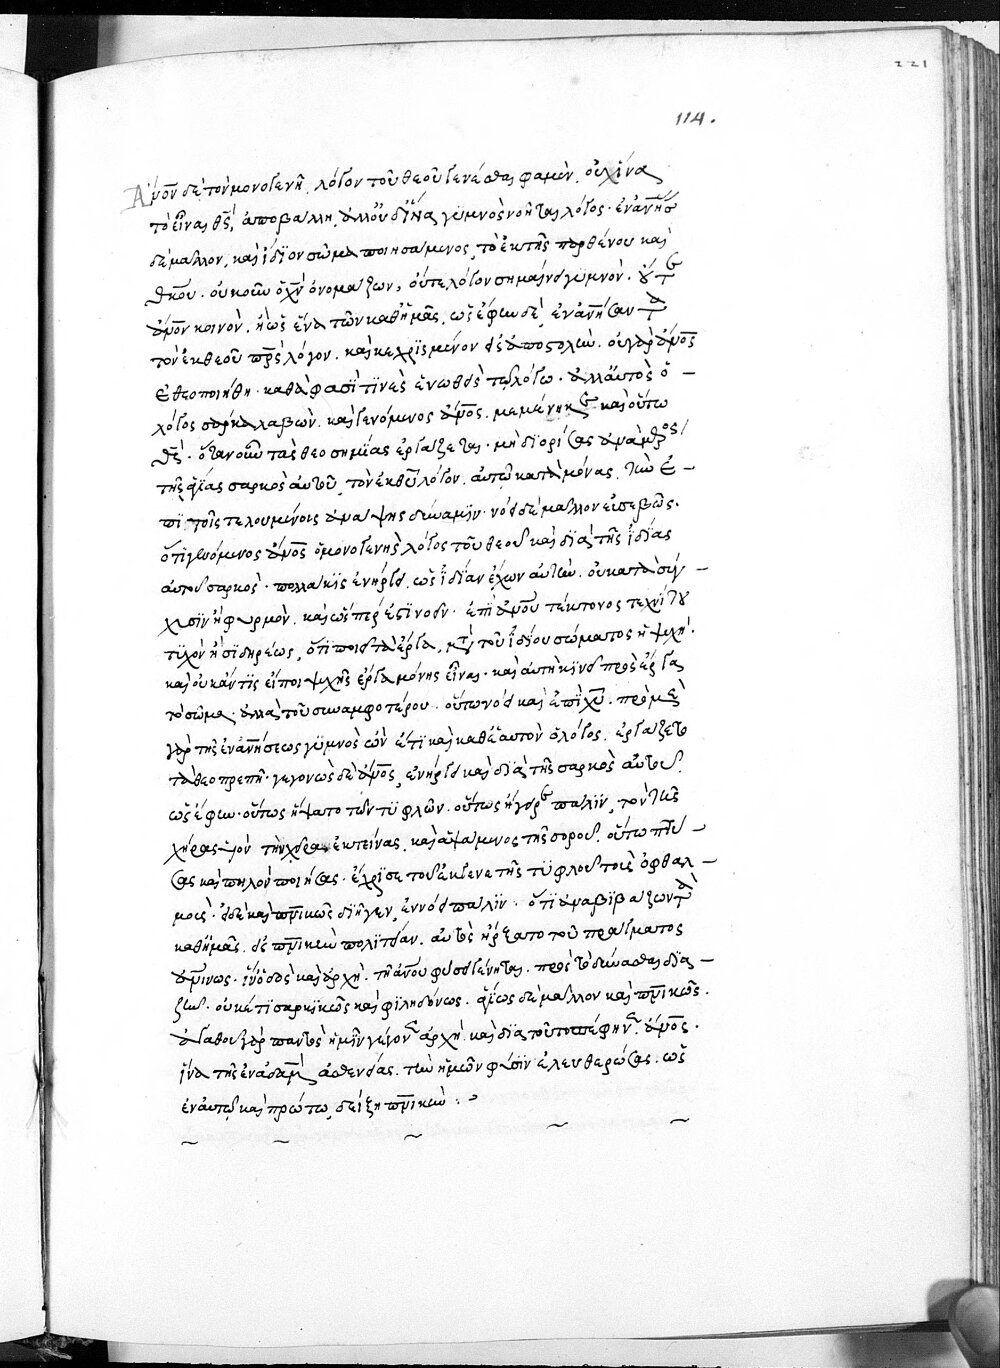 221
114.
Ἄνον δὲ τὸν μονογενῆ λόγον τοῦ θεοῦ γενέσθαι φαμὲν. οὐχ ἵνα
τὸ εἶναι θς, ἀποβάλλη, ἀλλ' οὐδ' ἵνα γυμνὸς νοῆται λόγος. ἐνανήσ
δὲ μᾶλλον, καὶ ἴδιον σῶμα ποιησάμενος, τὸ ἐκ τῆς παρθένου καὶ
θκου. οὐκοῦν ὁ χν ὀνομάζων, οὔτε λόγον σημαίνει γυμνὸν. οὔτε
ἄνον κοινὸν. ἢ ὡς ἕνα τῶν καθ' ἡμᾶς. ὡς ἔφην δὲ, ἐνανήσαντα
τὸν ἐκ θεοῦ πρς λόγον. καὶ κεχρισμένον εἰς ἀποστολὴν. οὐ γὰρ ἄνος
ἐθεοποιήθη. καθά φασί τινες ἑνωθεὶς τῷ λόγω. ἀλλ' αὐτὸς ὁ
λόγος σάρκα λαβὼν. καὶ γενόμενος ἄνος. μεμένηκε καὶ οὕτω
θς. ὅταν οὖν τὰς θεοσημίας ἐργάζεται. μὴ διορίσας ἀνὰ μέρος
τῆς ἁγίας σαρκὸς αὐτοῦ, τὸν ἐκ θυ λόγον. αὐτῷ καταμόνας, τὴν ἐ
πὶ τοῖς τελουμένοις ἀνάψης δύναμιν. νόει δὲ μᾶλλον εὐσεβῶς.
ὅτι γενόμενος ἄνος ὁ μονογενὴς λόγος τοῦ θεοῦ καὶ διὰ τῆς ἰδίας
αὐτοῦ σαρκὸς. πολλάκις ἐνήργει. ὡς ἰδίαν ἔχων αὐτὴν. οὐ κατὰ σύγ
χυσιν ἢ φυρμὸν. καὶ ὥσπερ ἐστὶ νοεῖν. ἐπὶ ἄνου τέκτονος τεχνίτου
τυχὸν ἢ σιδηρέως, ὅτι ποιεῖ τὰ ἔργα, μετὰ τοῦ ἰδίου σώματος ἡ ψυχὴ.
καὶ οὐκ ἄν τις εἴποι ψυχῆς ἔργα μόνης εἶναι. καὶ αὐτὴ κινεῖ πρὸς ἔργα
τὸ σῶμα. ἀλλὰ τοῦ συναμφοτέρου. οὕτω νόει καὶ ἐπὶ χυ. πρὸ μὲν
γὰρ τῆς ἐνανήσεως γυμνὸς ὢν ἔτι καὶ καθ' ἑαυτὸν ὁ λόγος. εἰργάζετο
τὰ θεοπρεπῆ. γεγονὼς δὲ ἄνος, ἐνήργει καὶ διὰ τῆς σαρκὸς αὐτοῦ.
ὡς ἔφην. οὕτως ἥψατο τῶν τυφλῶν. οὕτως ἤγειρε πάλιν, τὸν τῆς
χήρας υἱὸν τὴν χεῖρα ἐκτείνας. καὶ ἁψάμενος τῆς σοροῦ. οὕτω πτύ
σας καὶ πηλὸν ποιήσας. ἔχρισε τοῦ ἐκ γενετῆς τυφλοῦ τοὺς ὀφθαλ
μοὺς. εἰ δὲ καὶ πνικῶς διῆγεν, ἐννόει πάλιν. ὅτι ἀναβιβάζων τὰ
καθ' ἡμᾶς. εἰς πνικὴν πολιτείαν. αὐτὸς ἤρξατο τοῦ πράγματος
ἀνίνως. ἵν' ὁδὸς καὶ ἀρχὴ. τῇ ἀνου φύσει γένηται. πρὸς τὸ δύνασθαι διᾶ
ζῆν. οὐκέτι σαρκικῶς καὶ φιληδόνως. ἁγίως δὲ μᾶλλον καὶ πνικῶς.
ἀγαθοῦ γὰρ παντὸς ἡμῖν γέγονεν ἀρχὴ. καὶ διὰ τοῦτο πέφηνεν ἄνος.
ἵνα τῆς ἐν ἀδαμ ἀσθενείας. τὴν ἡμῶν φύσιν ἐλευθερώσας. ὡς
ἐν αὐτῷ καὶ πρώτω, δείξη πνικὴν.